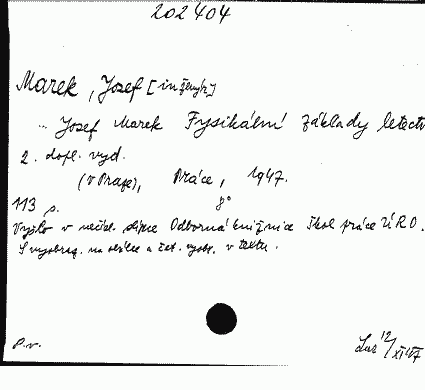 202404
Marek, Josef [inženýr]
... Josef Marek Fysikální základy letectv
2. dopl. vyd.
(V Praze), Práce, 1947.
113 s. 8°
Vyšlo v nečísl. Odborná knižnice škol práce ÚRO.
S vyobraz. na obálce a čet. vyobr. v textu.
P.v. 12/XI 47